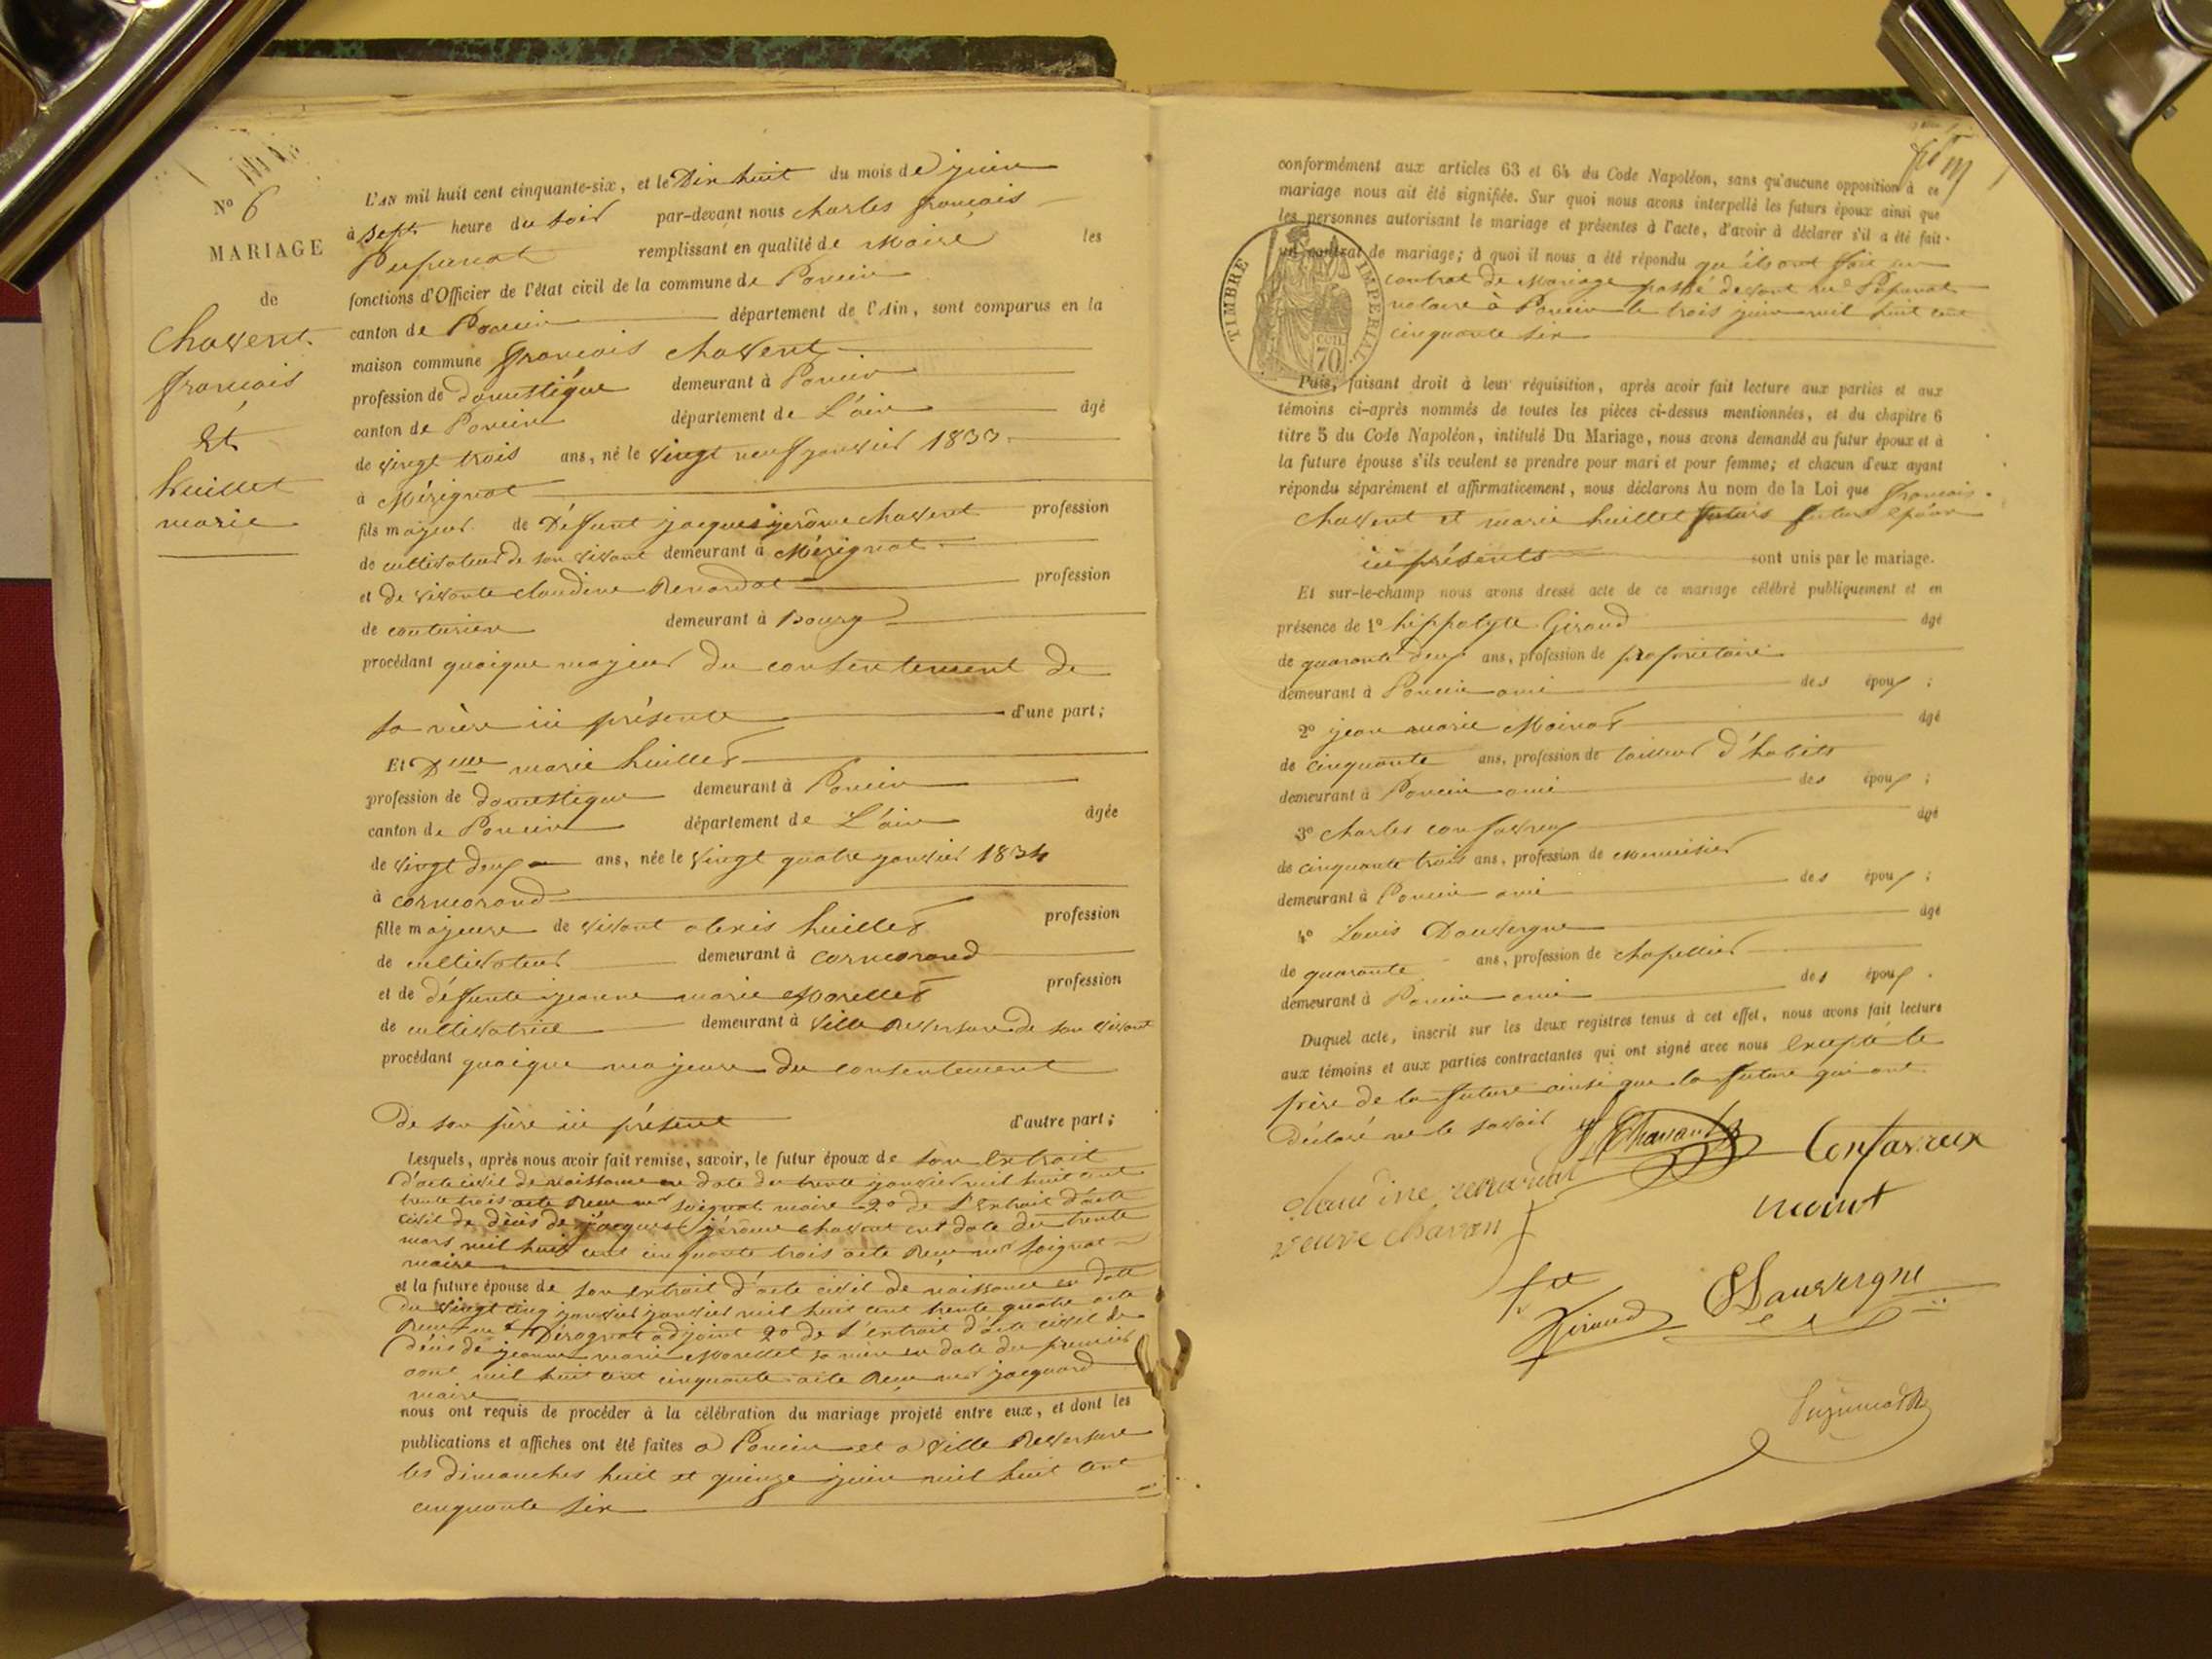 N° 6
MARIAGE
de
Chavent
françois
Et
huillet
marie
L'AN mil huit cent cinquante-six, et le Dix huit du mois de juin
à sept heure du soir par-devant nous charles françois
remplissant en qualité de Maire les
fonctions d'Officier de l'état civil de la commune de Poncin
canton de Poncin département de l'Ain, sont comparus en la
maison commune françois chavent
profession de domestique demeurant à Poncin
canton de Poncin département de L'ain âgé
de vingt trois ans, né le vingt neuf janvier 1833
à Mérignat
fils majeur de Défunt jacques jérôme chavent profession
de cultivateur de son vivant demeurant à Mérignat
et de vivante claudine Renardat profession
de couturière demeurant à Bourg
procédant quoique majeur du consentement de
sa mère ici présente d'une part;
Et Dlle marie huillet
profession de domestique demeurant à Poncin
canton de Poncin département de L'ain âgée
de vingt deux ans, née le vingt quatre janvier 1834
à cormorand
fille majeure de vivant alexis huillet profession
de cultivateur demeurant à cormorand
et de défunte jeanne marie Morellet profession
de cultivatrice demeurant à Ville Reversure de son vivant
procédant quoique majeure du consentement
De son père ici présent d'autre part;
Lesquels, après nous avoir fait remise, savoir, le futur époux de son extrait
d'acte civil de naissance en date du trente janvier mil huit cent
trente trois acte Reçu mr Soignat maire 2° de l'Extrait d'acte
civil de décès de jacques jérôme chavent en date du trente
mars mil huit cent cinquante trois acte Reçu mr Soignat
maire
et la future épouse de son extrait d'acte civil de naissance en date
du vingt cinq janvier janvier mil huit cent trente quatre acte
Reçu mr Dérognat adjoint 2° de l'extrait d'acte civil de
décès de jeanne marie Morellet sa mère en date du premier
aout mil huit cent cinquante acte Reçu mr jacquard
maire
nous ont requis de procéder à la célébration du mariage projeté entre eux, et dont les
publications et affiches ont été faites a Poncin et a Ville Reversure
les dimanches huit et quinze juin mil huit cent
cinquante six
conformément aux articles 63 et 64 du Code Napoléon, sans qu'aucune opposition à ce
mariage nous ait été signifiée. Sur quoi nous avons interpellé les futurs époux ainsi que
les personnes autorisant le mariage et présentes à l'acte, d'avoir à déclarer s'il a été fait
un contrat de mariage; à quoi il nous a été répondu qu'ils ont fait un
contrat de Mariage passé devant mr
notaire à Poncin le trois juin mil huit cent
cinquante six
TIMBRE IMPERIAL
CCIL
70
Puis, faisant droit à leur réquisition, après avoir fait lecture aux parties et aux
témoins ci-après nommés de toutes les pièces ci-dessus mentionnées, et du chapitre 6
titre 5 du Code Napoléon, intitulé Du Mariage, nous avons demandé au futur époux et à
la future épouse s'ils veulent se prendre pour mari et pour femme; et chacun d'eux ayant
répondu séparément et affirmativement, nous déclarons Au nom de la Loi que françois
chavent et marie huillet futurs époux
ici présents sont unis par le mariage.
Et sur-le-champ nous avons dressé acte de ce mariage célébré publiquement et en
présence de 1° hippolyte Giraud âgé
de quarante deux ans, profession de propriétaire
demeurant à Poncin ami des époux;
2° jean marie Moinat âgé
de cinquante ans, profession de tailleur d'habits
demeurant à Poncin ami des époux;
3° charles confavreux âgé
de cinquante trois ans, profession de Menuisier
demeurant à Poncin ami des époux;
4° Louis Dauvergne âgé
de quarante ans, profession de chapellier
demeurant à Poncin ami des époux.
Duquel acte, inscrit sur les deux registres tenus à cet effet, nous avons fait lecture
aux témoins et aux parties contractantes qui ont signé avec nous excepté le
père de la future ainsi que la future qui ont
déclaré ne le savoir
f Chavant
Confavreux
claudine renardat
veuve chavan
moinat
hte
Giraud
Dauvergne